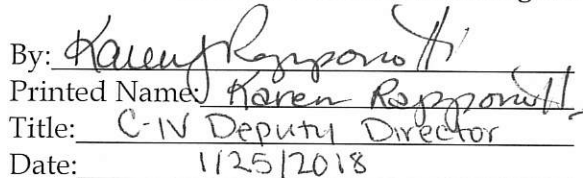 By: Karen J Rapponotti
Printed Name: Karen Rapponotti
Title: C-IV Deputy Director
Date: 1/25/2018